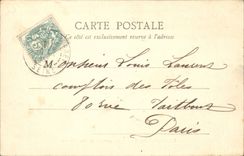 CARTE POSTALE
Ce côté est exclusivement réservé à l'adresse
Monsieur Louis
comptoir des
80 rue Taitbout
Paris